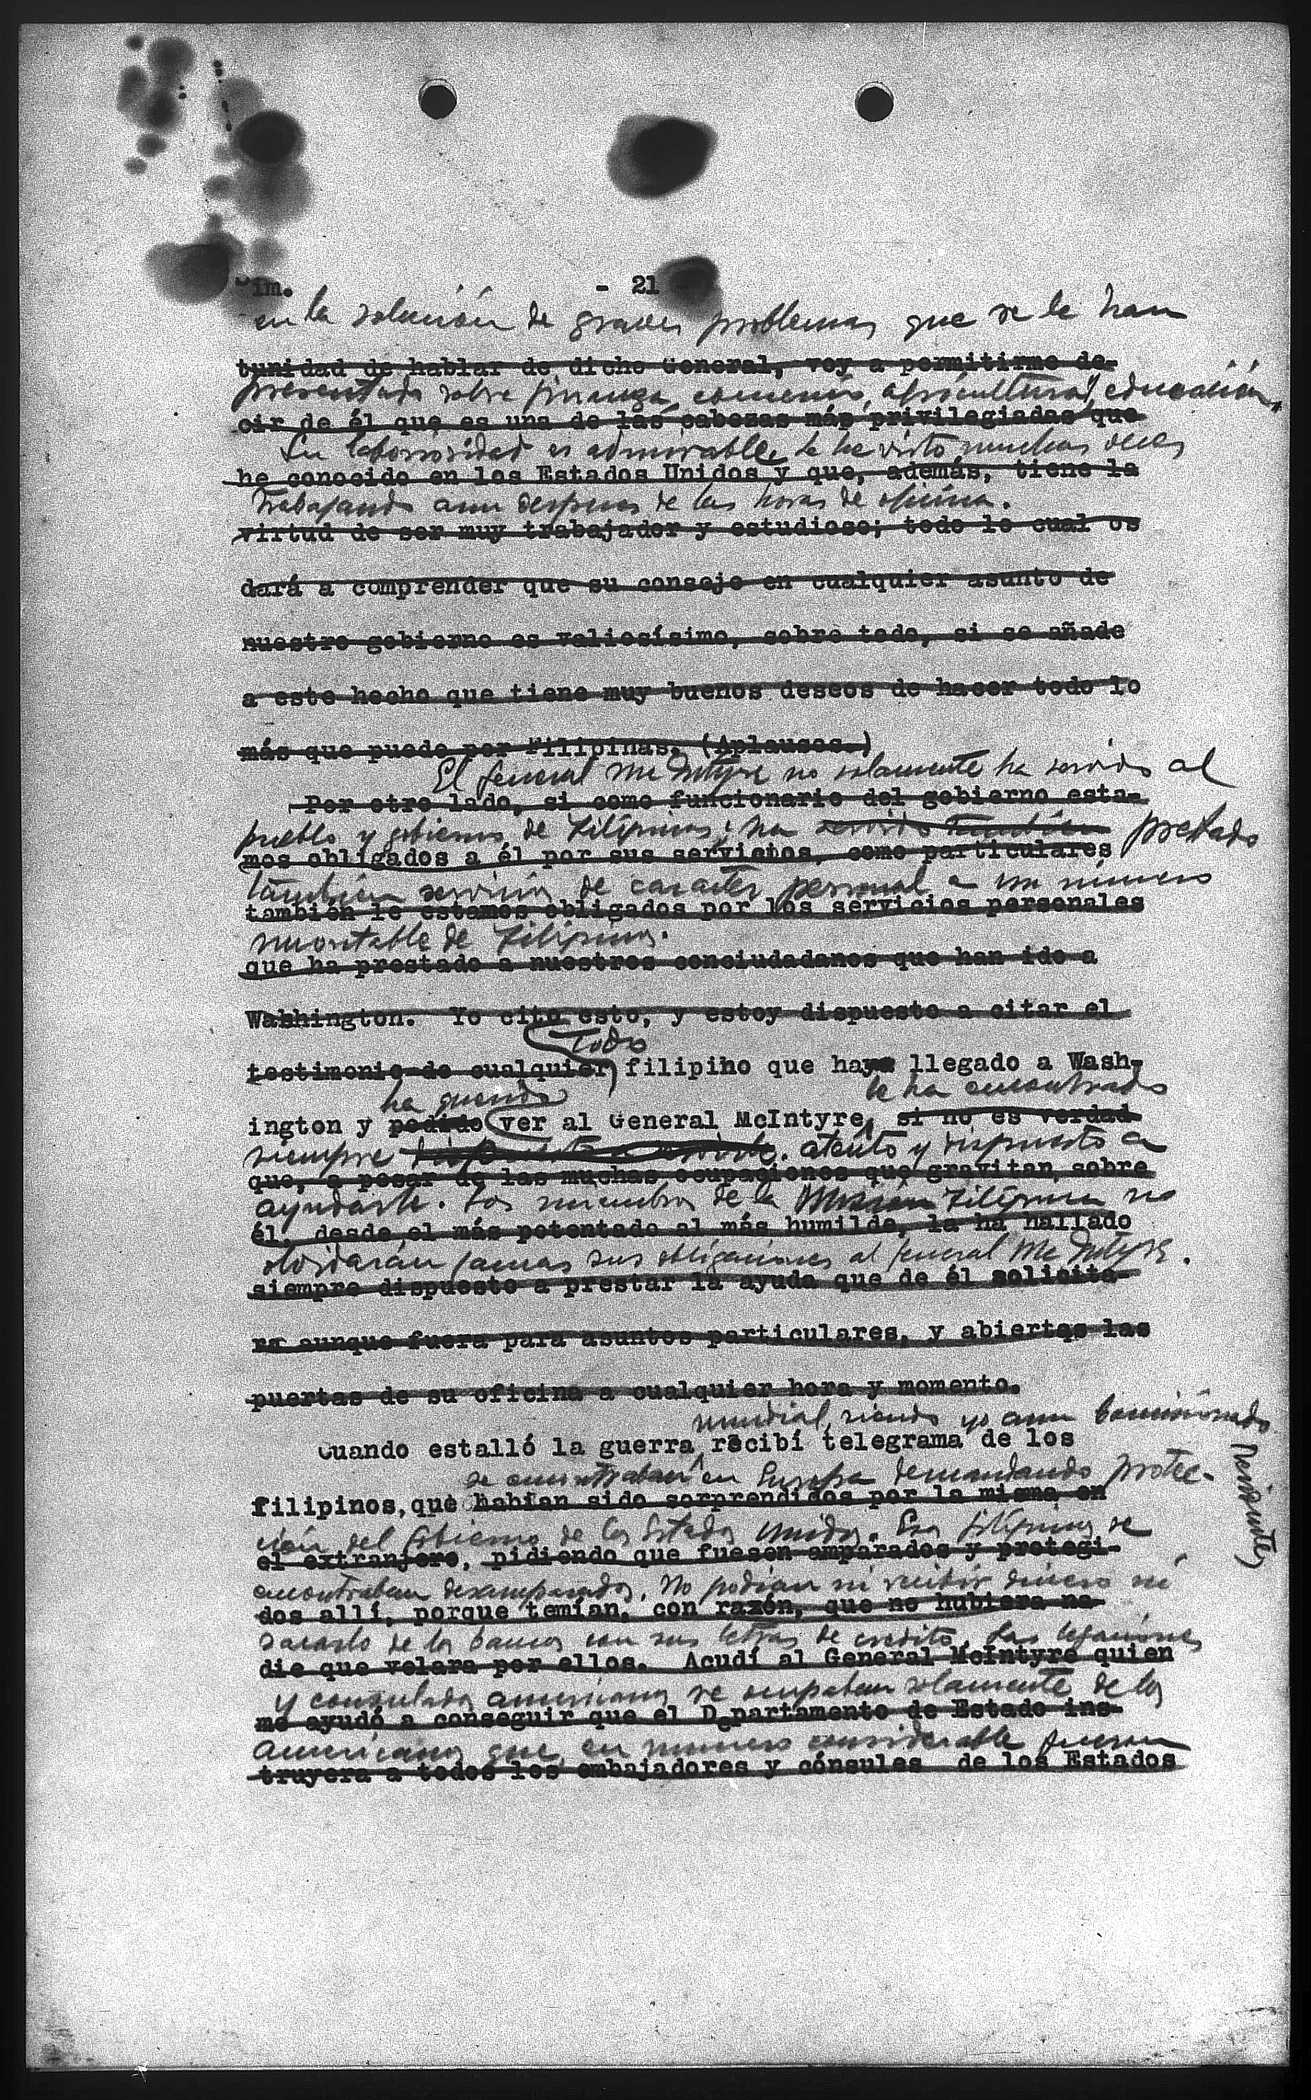 im. - 21
en la solución de graves problemas que se le han
tunidad de hablar de dicho General, voy a permitirme de-
presentado sobre finanza, comercio, agricultura, educación.
cir de él que es una de las cabezas más privilegiadas que
Su laboriosidad es admirable. Le he visto muchas veces
he conocido en los Estados Unidos y que, además, tiene la
trabajando aun despues de las horas de oficina.
virtud de ser muy trabajador y estudioso; todo lo cual os
dará a comprender que su consejo en cualquier asunto de
nuestro gobierno es valiosísimo, sobre todo, si se añade
a este hecho que tiene muy buenos deseos de hacer todo lo
más que puede por Filipinas. (Aplausos.)
El general McIntyre no solamente ha servido al
Por otro lado, si como funcionario del gobierno esta-
pueblo y gobierno de Filipinas; ha servido también prestado
mos obligados a él por sus servicios, como particulares
también servicios de caracter personal a un número
también le estamos obligados por los servicios personales
incontable de Filipinos.
que ha prestado a nuestros conciudadanos que han ido a
Washington. Yo cito esto, y estoy dispuesto a citar el
Todo
testimonio de cualquier filipino que haya llegado a Wash-
ha querido le ha encontrado
ington y podido ver al General McIntyre, si no es verdad
siempre atento y dispuesto a
que, a pesar de las muchas ocupaciones que gravitan sobre
ayudarle. Los miembros de la Misión Filipina no
él, desde el más potentado al más humilde, la ha hallado
olvidarán jamas sus obligaciones al general McIntyre.
siempre dispuesto a prestar la ayuda que de él solicita-
ra aunque fuera para asuntos particulares, y abiertas las
puertas de su oficina a cualquier hora y momento.
mundial, siendo yo aun Comisionado Residente,
Cuando estalló la guerra recibí telegrama de los
se encontraban en Europa demandando protec-
filipinos, que habían sido sorprendidos por la misma en
ción del Gobierno de los Estados Unidos. Los filipinos se
el extranjero, pidiendo que fuesen amparados y protegi-
encontraban desamparados. No podían ni recibir dinero ni
dos allí, porque temían, con razón, que no hubiera na-
sacarlo de los bancos con sus letras de crédito. Las legaciones
die que velara por ellos. Acudí al General McIntyre quien
y consulados americanos se ocupaban solamente de los
me ayudó a conseguir que el Departamento de Estado ins-
americanos que en numero considerable fueron
truyera a todos los embajadores y cónsules de los Estados